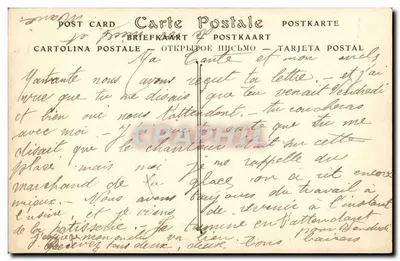 POST CARD Carte Postale POSTKARTE
BRIEFKAART POSTKAART
CARTOLINA POSTALE ОТКРЫТОЕ ПИСЬМО TARJETA POSTAL
Ma tante et mon oncle
nous avons reçut ta lettre. et j'ai
vue que tu me disais que tu venait Vendredi
et bien oui nous t'attendont. tu coucheras
avec moi que tu me
disait que le était sur cette
mais moi je me rappelle du
marchand de la glace on a rit encore
mieux. Nous avons toujours du travail a
l'usine. et je viens de revenir à l'instant
de la patisserie. Je termine en t'attendant
mon oncle va bien pour Vendredi
tous deux, deux bons baisers
CPAPHIL